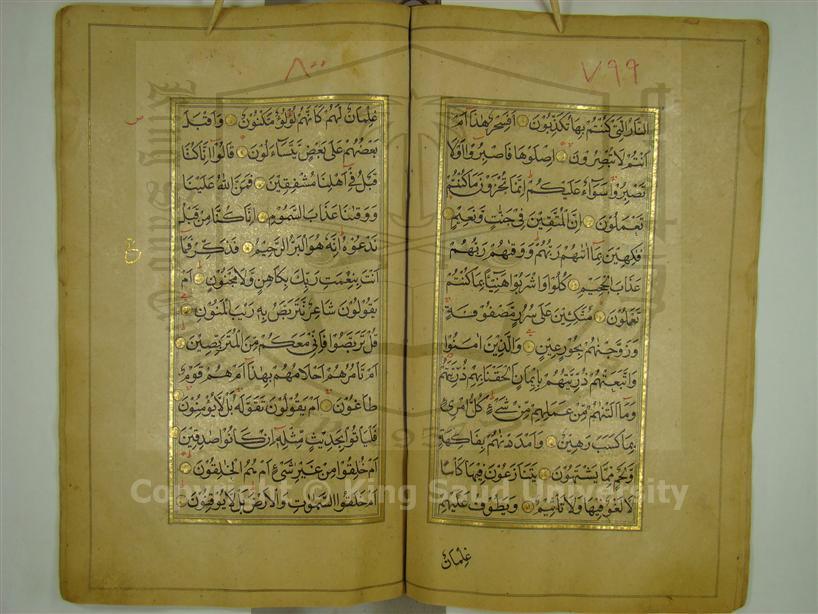 ٧٩٩
النار التى كنتم بها تكذبون افسحر هذا ام
انتم لا تبصرون اصلوها فاصبروا اولا
تصبروا سواء عليكم انما تجزون ما كنتم
تعملون ان المتقين فى جنت ونعيم
فكهين بما اتىهم ربهم ووقىهم ربهم
عذاب الجحيم كلوا واشربوا هنيئا بما كنتم
تعملون متكئين على سرر مصفوفة
وزوجنهم بحور عين والذين امنوا
واتبعتهم ذريتهم بايمان الحقنا بهم ذريتهم
وما التنهم من عملهم من شىء كل امرئ
بما كسب رهين وامددنهم بفاكهة
ولحم مما يشتهون يتنازعون فيها كأسا
لا لغو فيها ولا تأثيم ويطوف عليهم
غلمان
٨٠٠
غلمان لهم كانهم لؤلؤ مكنون واقبل
بعضهم على بعض يتساءلون قالوا انا كنا
قبل فى اهلنا مشفقين فمن الله علينا
ووقىنا عذاب السموم انا كنا من قبل
ندعوه انه هو البر الرحيم فذكر فما
انت بنعمت ربك بكاهن ولا مجنون ام
يقولون شاعر نتربص به ريب المنون
قل تربصوا فانى معكم من المتربصين
ام تأمرهم احلامهم بهذا ام هم قوم
طاغون ام يقولون تقوله بل لا يؤمنون
فليأتوا بحديث مثله ان كانوا صدقين
ام خلقوا من غير شىء ام هم الخلقون
ام خلقوا السموت والارض بل لا يوقنون
Copyright © King Saud University